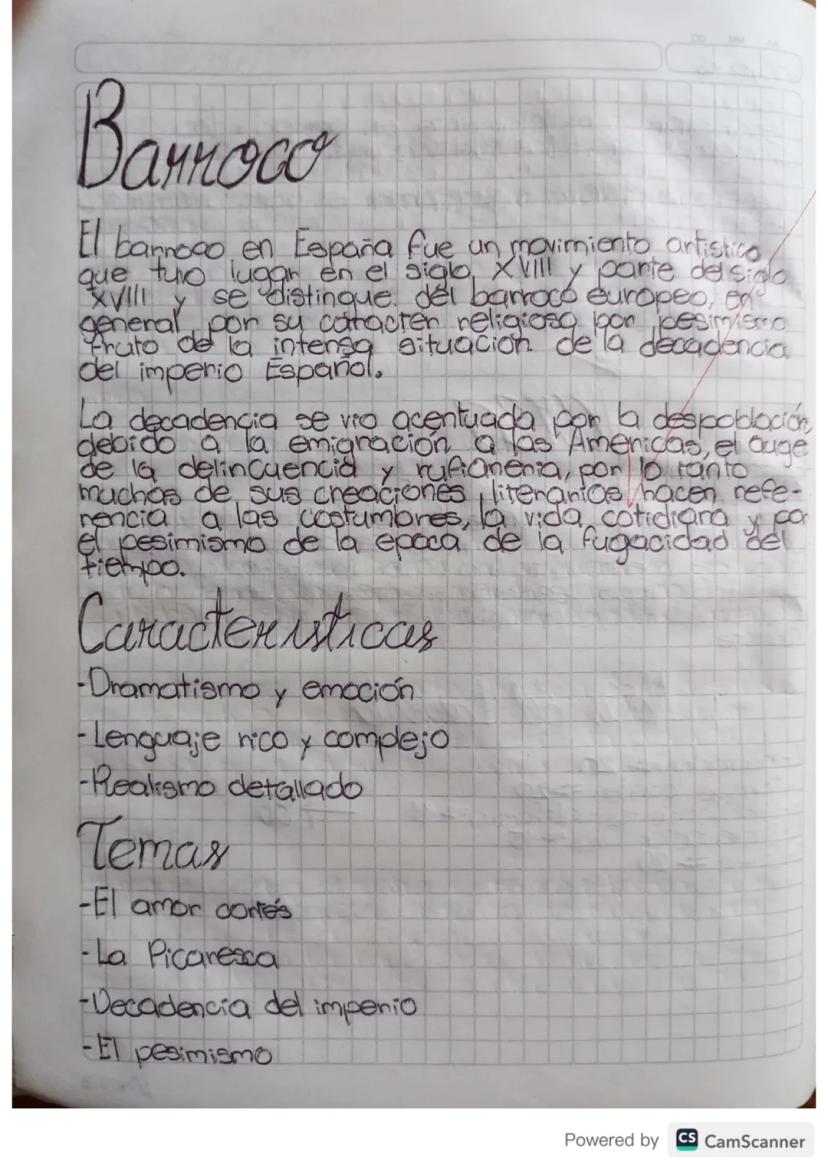 Barroco
El barroco en España fue un movimiento artistico
que tuvo lugar en el siglo XVIII y parte del siglo
XVIII y se distingue del barroco europeo, en
general, por su caracter religioso, por pesimismo
fruto de la intensa situación de la decadencia
del imperio Español.
La decadencia se vio acentuada por la despoblación,
debido a la emigración a las Américas, el auge
de la delincuencia y rufianeria, por lo tanto
muchas de sus creaciones literarias hacen refe-
rencia a las costumbres, la vida cotidiana y por
el pesimismo de la epoca de la fugacidad del
tiempo.
Caracteristicas
-Dramatismo y emoción
-Lenguaje rico y complejo
-Realismo detallado
Temas
-El amor cortés
-La Picaresca
-Decadencia del imperio
-El pesimismo
Powered by CS CamScanner